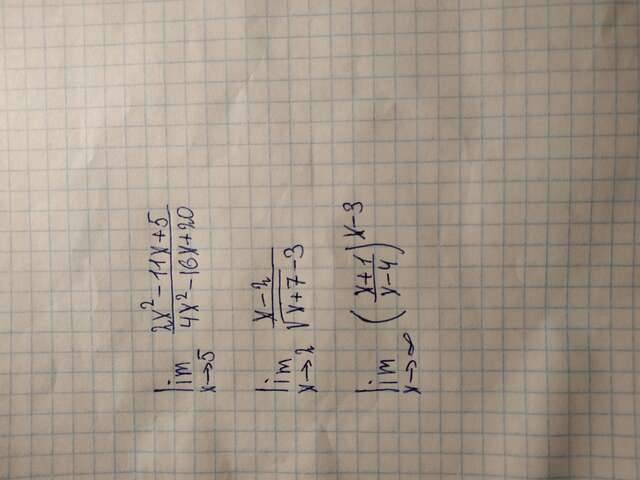 lim x→5 (2x² - 11x + 5)/(4x² - 16x + 20)
lim x→2 (x - 2)/(√(x + 7) - 3)
lim x→∞ ((x + 1)/(x - 4))^(x - 3)